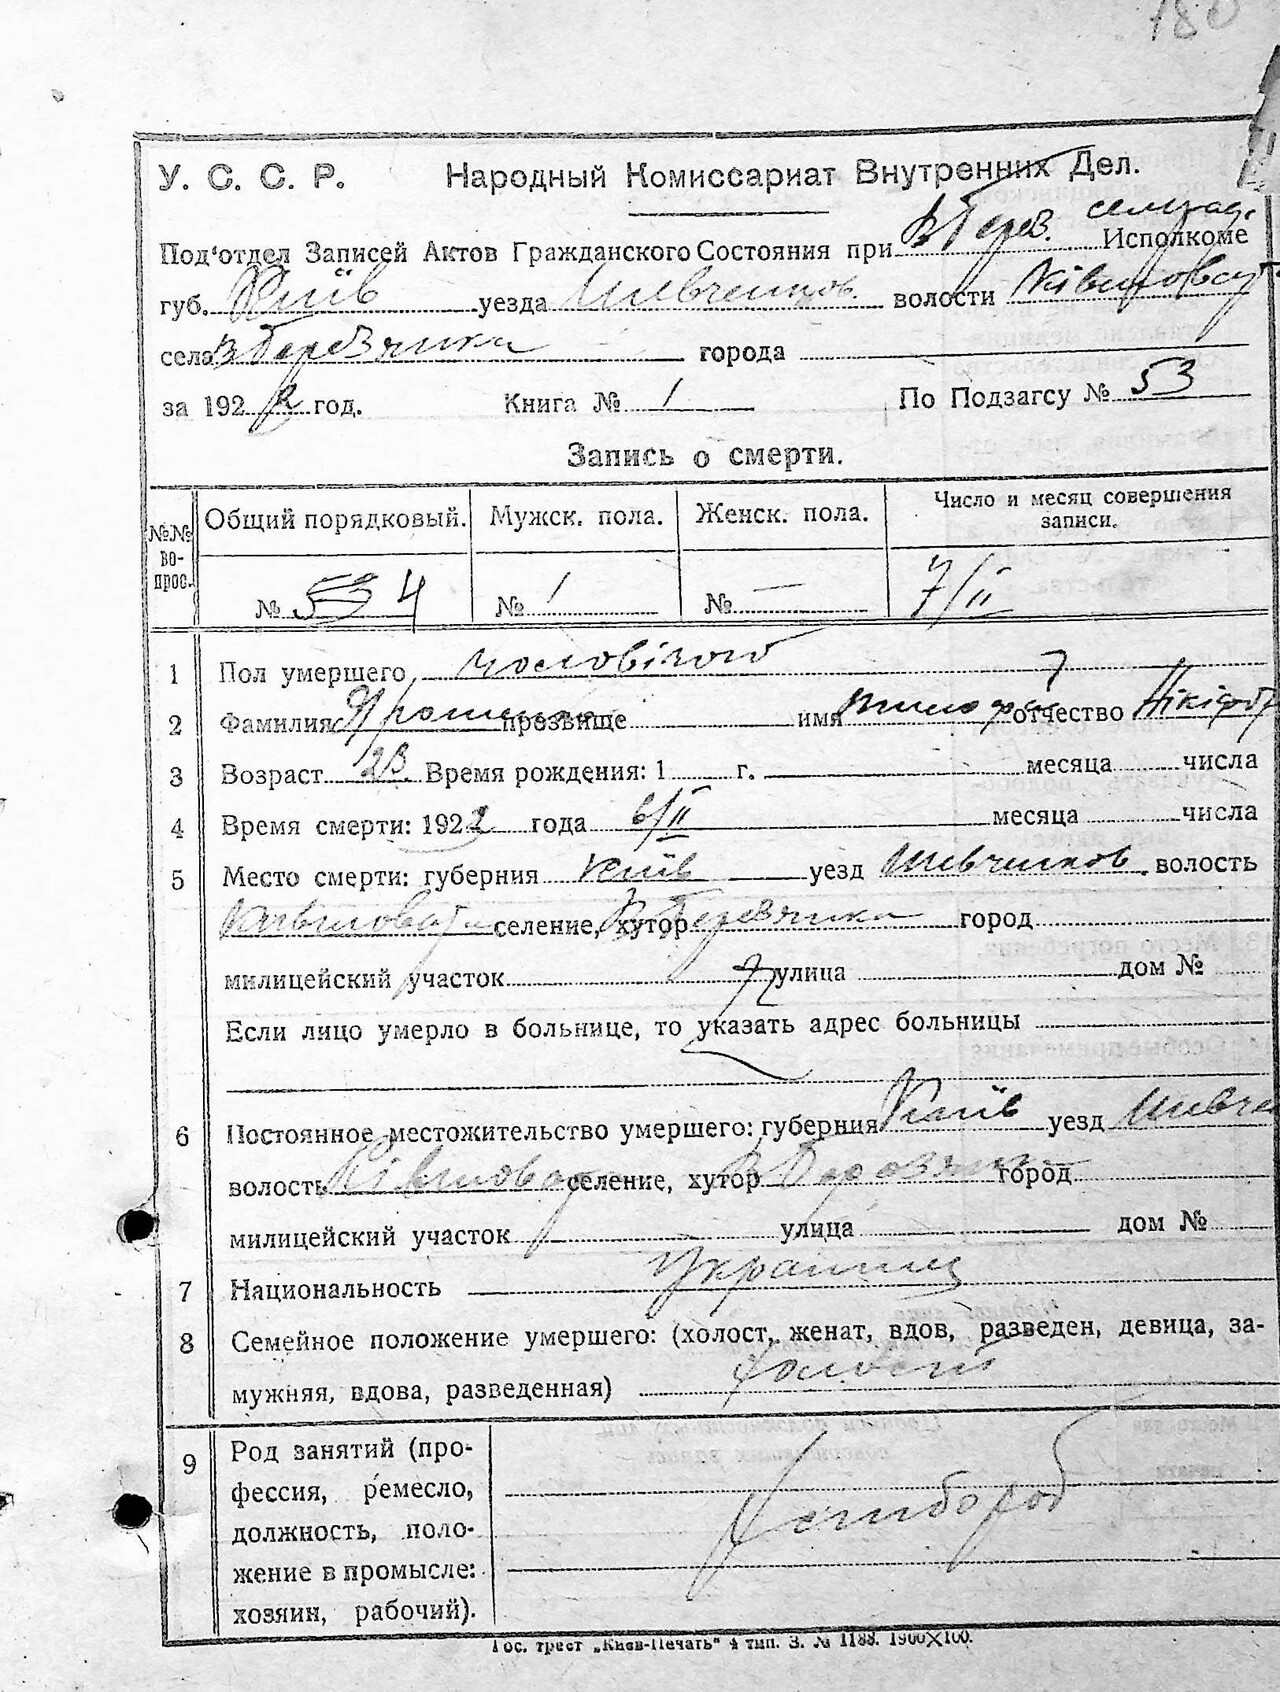 180
У. С. С. Р. Народный Комиссариат Внутренних Дел.
Под'отдел Записей Актов Гражданского Состояния при В Терез. сельрад. Исполкоме
губ. Київ уезда Шевченков. волости
села В Березянка города
за 1922 год. Книга № 1 По Подзагсу № 53
Запись о смерти.
№№ во-прос. Общий порядковый. Мужск. пола. Женск. пола. Число и месяц совершения записи.
№ 4 № 1 № — 7/II
1 Пол умершего чоловічого
2 Фамилия прозвище имя отчество
3 Возраст 23. Время рождения: 1 г. месяца числа
4 Время смерти: 1922 года 6/II месяца числа
5 Место смерти: губерния Київ уезд Шевченков. волость
селение, хутор город
милицейский участок улица дом №
Если лицо умерло в больнице, то указать адрес больницы
6 Постоянное местожительство умершего: губерния Київ уезд Шевче
волость селение, хутор город
милицейский участок улица дом №
7 Национальность Украинец
8 Семейное положение умершего: (холост, женат, вдов, разведен, девица, за-
мужняя, вдова, разведенная) холостий
9 Род занятий (про-
фессия, ремесло,
должность, поло-
жение в промысле:
хозяин, рабочий). Хлибороб
Гос. трест „Киев-Печать" 4 тип. З. № 1188. 1900×100.